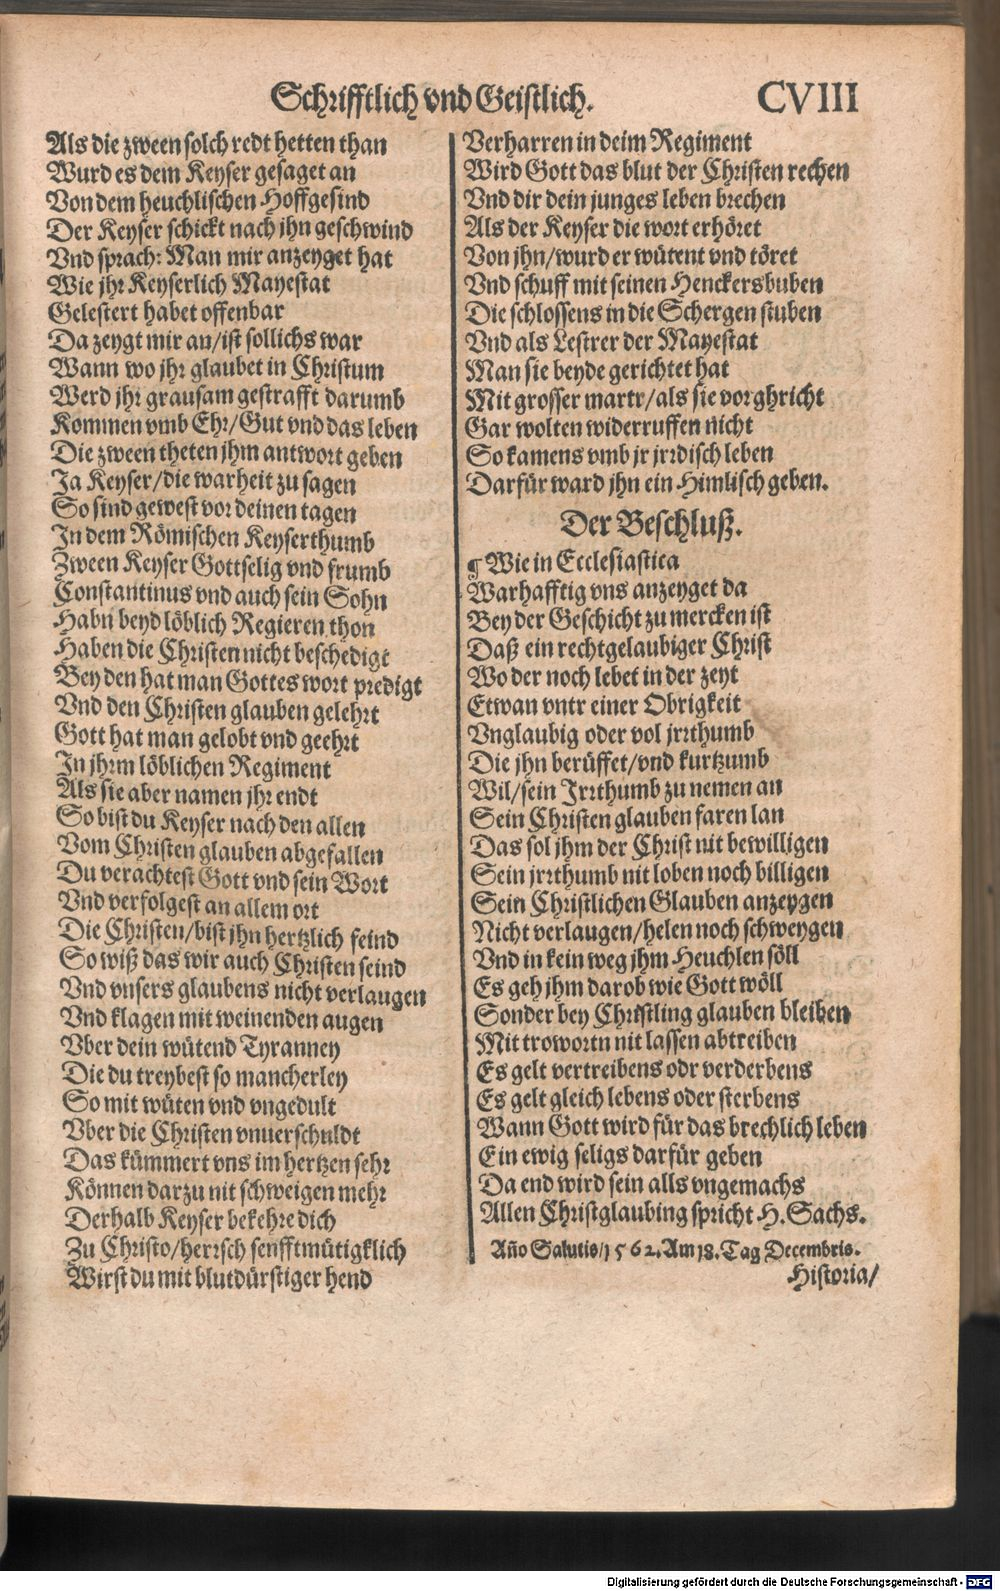 Schrifftlich vnd Geistlich. CVIII
Als die zween solch redt hetten than
Wurd es dem Keyser gesaget an
Von dem heuchlischen Hoffgesind
Der Keyser schickt nach jhn geschwind
Vnd sprach: Man mir anzeyget hat
Wie jhr Keyserlich Mayestat
Gelestert habet offenbar
Da zeygt mir an/ist sollichs war
Wann wo jhr glaubet in Christum
Werd jhr grausam gestrafft darumb
Kommen vmb Ehr/Gut vnd das leben
Die zween theten jhm antwort geben
Ja Keyser/die warheit zu sagen
So sind gewest vor deinen tagen
In dem Römischen Keyserthumb
Zween Keyser Gottselig vnd frumb
Constantinus vnd auch sein Sohn
Habn beyd löblich Regieren thon
Haben die Christen nicht beschedigt
Bey den hat man Gottes wort predigt
Vnd den Christen glauben gelehrt
Gott hat man gelobt vnd geehrt
In jhrm löblichen Regiment
Als sie aber namen jhr endt
So bist du Keyser nach den allen
Vom Christen glauben abgefallen
Du verachtest Gott vnd sein Wort
Vnd verfolgest an allem ort
Die Christen/bist jhn hertzlich feind
So wiß das wir auch Christen seind
Vnd vnsers glaubens nicht verlaugen
Vnd klagen mit weinenden augen
Vber dein wütend Tyranney
Die du treybest so mancherley
So mit wüten vnd vngedult
Vber die Christen vnuerschuldt
Das kümmert vns im hertzen sehr
Können darzu nit schweigen mehr
Derhalb Keyser bekehre dich
Zu Christo/herrsch senfftmütigklich
Wirst du mit blutdürstiger hend
Verharren in deim Regiment
Wird Gott das blut der Christen rechen
Vnd dir dein junges leben brechen
Als der Keyser die wort erhöret
Von jhn/wurd er wütent vnd töret
Vnd schuff mit seinen Henckersbuben
Die schlossens in die Schergen stuben
Vnd als Lestrer der Mayestat
Man sie beyde gerichtet hat
Mit grosser martr/als sie vor ghricht
Gar wolten widerruffen nicht
So kamens vmb jr jrrdisch leben
Darfür ward jhn ein Himlisch geben.
Der Beschluß.
¶ Wie in Ecclesiastica
Warhafftig vns anzeyget da
Bey der Geschicht zu mercken ist
Daß ein rechtgelaubiger Christ
Wo der noch lebet in der zeyt
Etwan vntr einer Obrigkeit
Vnglaubig oder vol jrrthumb
Die jhn berüffet/vnd kurtzumb
Wil/sein Irrthumb zu nemen an
Sein Christen glauben faren lan
Das sol jhm der Christ nit bewilligen
Sein jrrthumb nit loben noch billigen
Sein Christlichen Glauben anzeygen
Nicht verlaugen/helen noch schweygen
Vnd in kein weg jhm Heuchlen söll
Es geh jhm darob wie Gott wöll
Sonder bey Christling glauben bleiben
Mit trowortn nit lassen abtreiben
Es gelt vertreibens odr verderbens
Es gelt gleich lebens oder sterbens
Wann Gott wird für das brechlich leben
Ein ewig seligs darfür geben
Da end wird sein alls vngemachs
Allen Christglaubing spricht H. Sachs.
Año Salutis/1562. Am 18. Tag Decembris.
Historia/
Digitalisierung gefördert durch die Deutsche Forschungsgemeinschaft - DFG